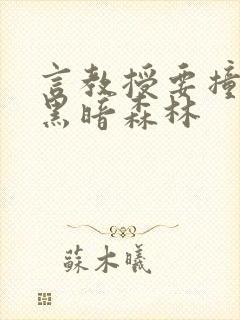 言教授要撞
黑暗森林
蘇木曦